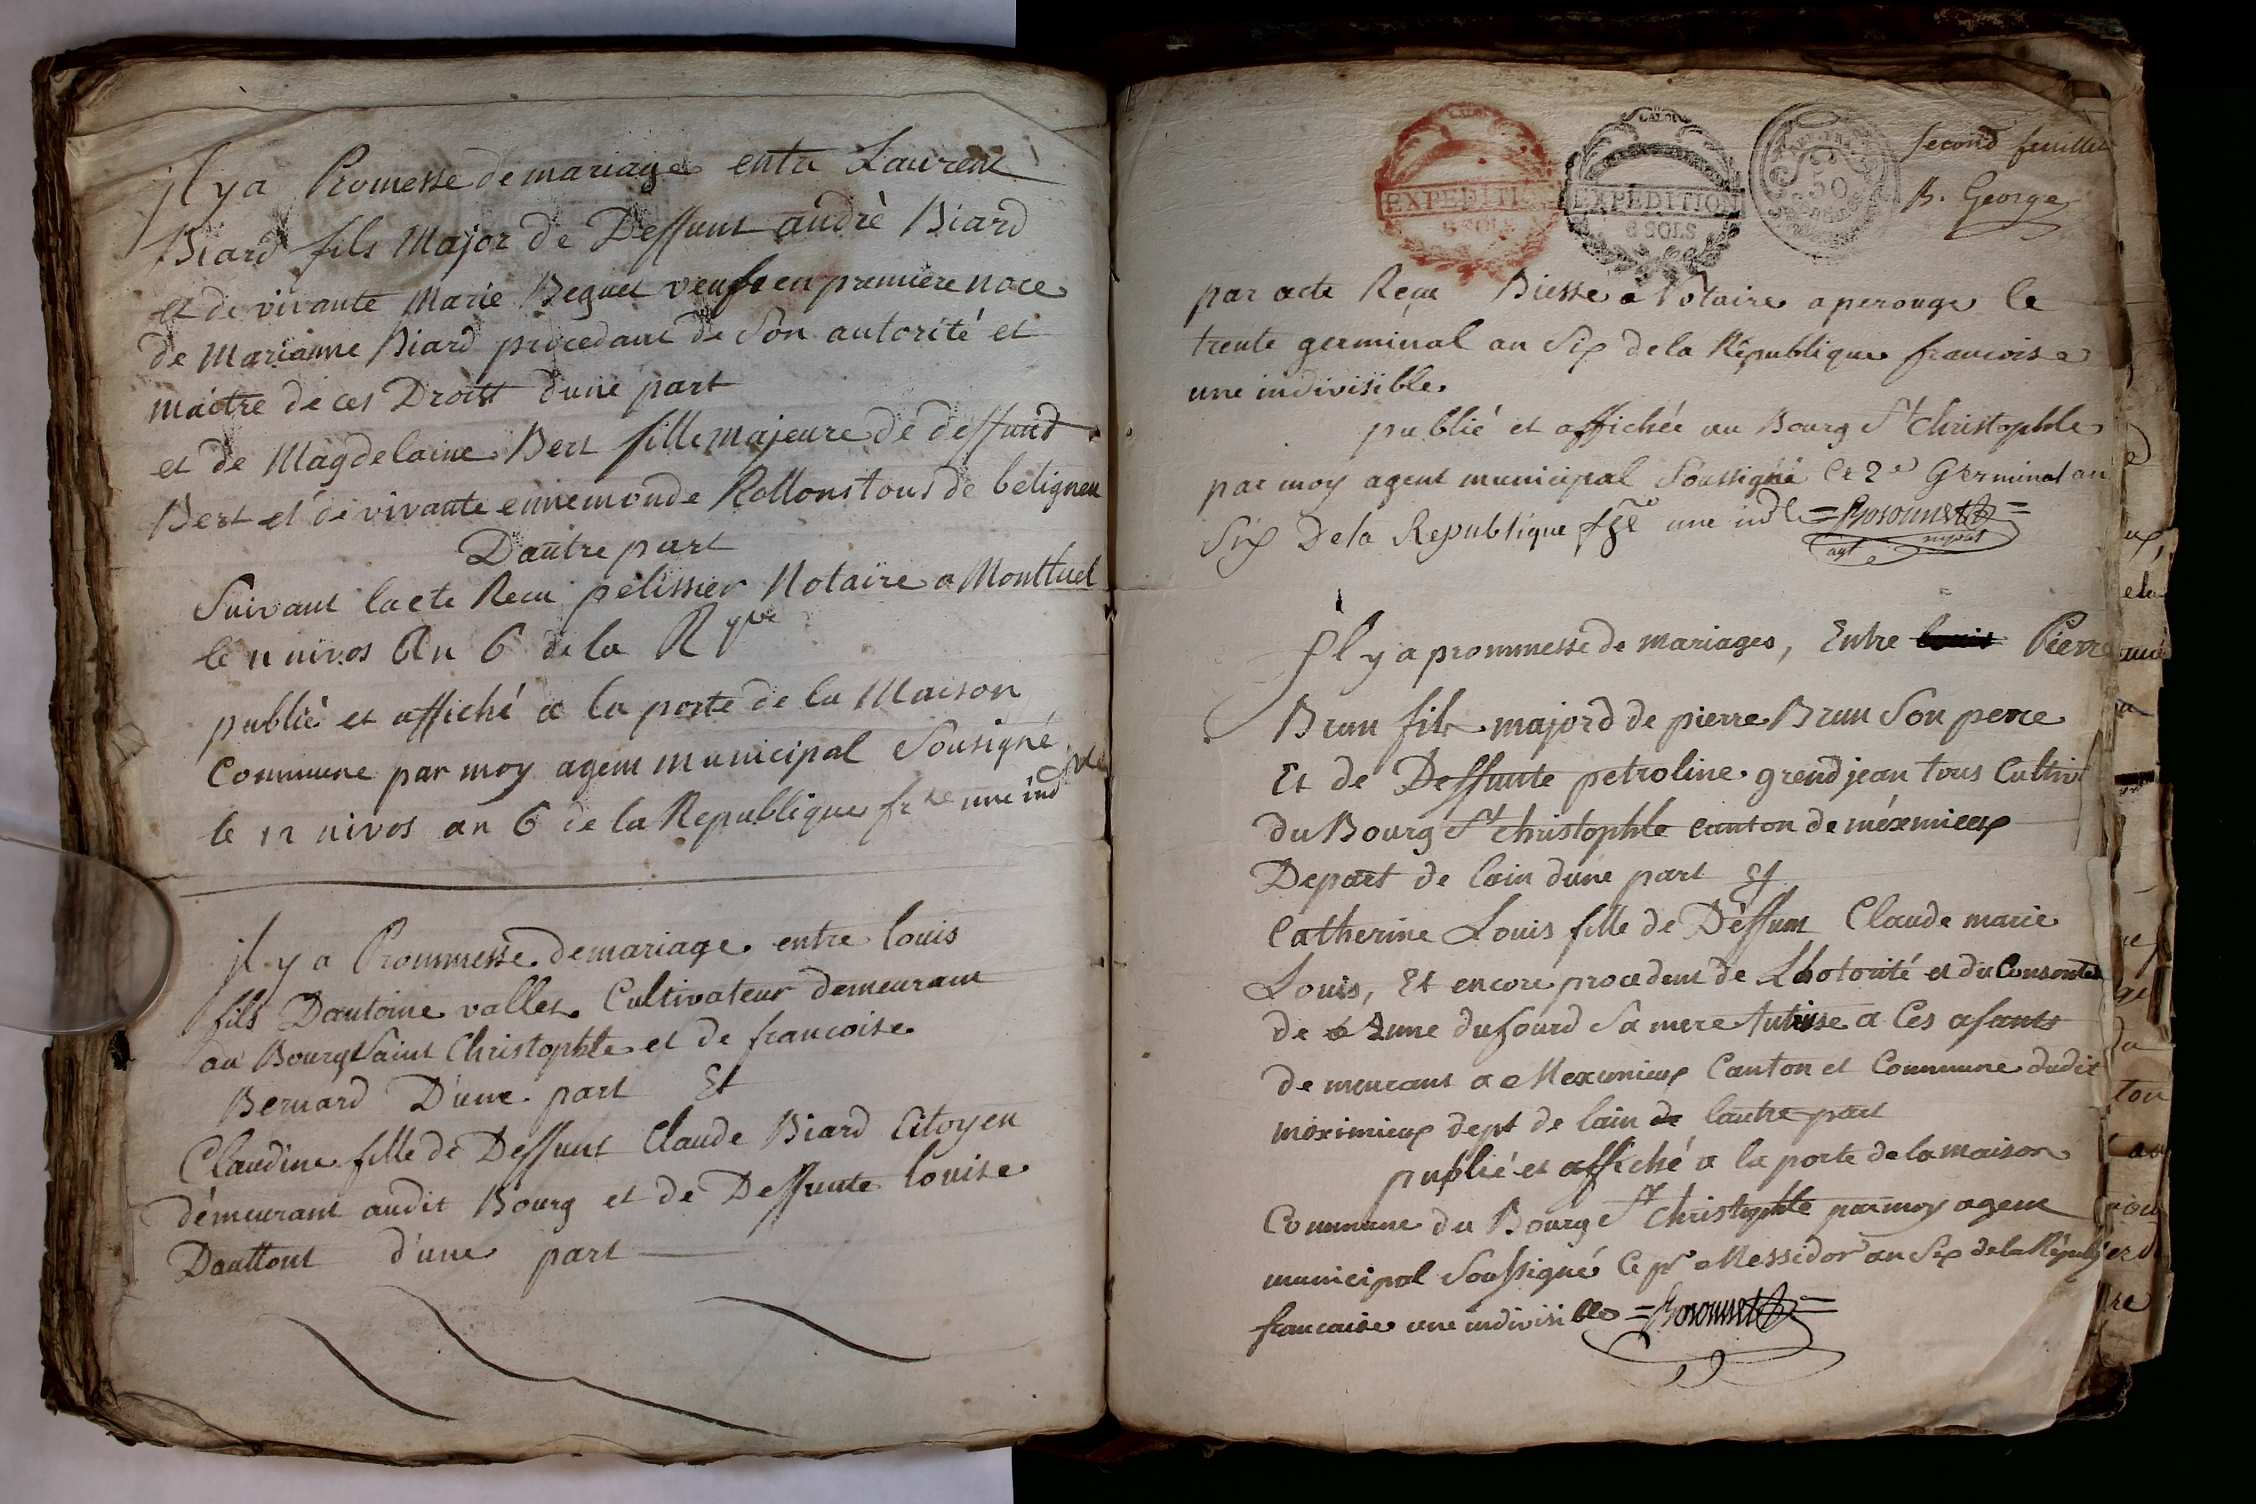 il y a Promesse de mariage entre Laurent
Biard fils Major de Deffunt andrè Biard
et de vivante Marie Beguet veuf en premiere noce
de Marianne Biard procedant de Son autorité et
maitre de ces Droits d'une part
et de Magdelaine Bert fille majeure de deffund
Bert et de vivante ennemonde Rollons tous de beligneu
Dautre part
Suivant lacte Recu pelissier Notaire a Montluel
le 11 nivos An 6 de la Rque
publié et affiché a la porte de la Maison
Commune par moy agent municipal Sousigné
le 12 nivos an 6 de la Republique frse une indble
il y a Prommesse de mariage entre louis
fils Dantoine vallet Cultivateur demeurant
au Bourg Saint Christophle et de francoise
Bernard D'une part Et
Claudine fille de Deffunt Claude Biard Citoyen
démeurant audit Bourg et de Deffunte louise
Dauttont d'une part
EXPEDITION
6 SOLS
EXPEDITION
6 SOLS
50
second feuillet
B. George
par acte Reçu Biesse Notaire a perouge le
trente germinal an Six de la Republique francoise
une indivisible
publié et affichée au Bourg St Christophle
par moy agent municipal Soussigné le 2e Germinal an
Six De la Republique fse une indle
agt mpal
Il y a prommesse de mariages, Entre louis Pierre
Brun fils majord de pierre Brun Son perre
Et de Deffunte petroline grendjean tous Cultivt
du Bourg St christophle canton de méximieux
Depart de lain dune part Et
Catherine Louis fille de Deffunt Claude marie
Louis, Et encore procedent de Lhotorité et du Consente
de dufourd Sa mere Autorise a Ces afants
demeurant a Meximieux Canton et Commune dudit
méximieux dept de lain de lautre part
publié et affiché a la porte de la maison
Commune du Bourg St Christophle par moy agent
municipal Soussigné Ce pr Messidor an Six de la Républi
francaise une indivisible